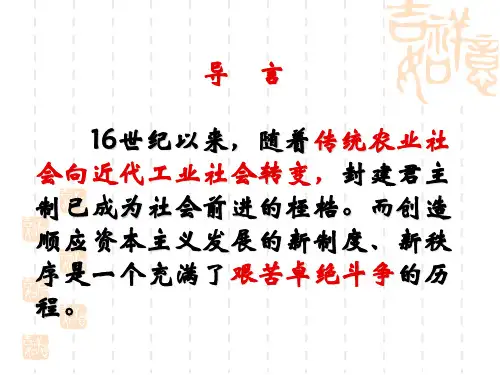 吉祥如意
导 言
16世纪以来，随着传统农业社
会向近代工业社会转变，封建君主
制已成为社会前进的桎梏。而创造
顺应资本主义发展的新制度、新秩
序是一个充满了艰苦卓绝斗争的历
程。